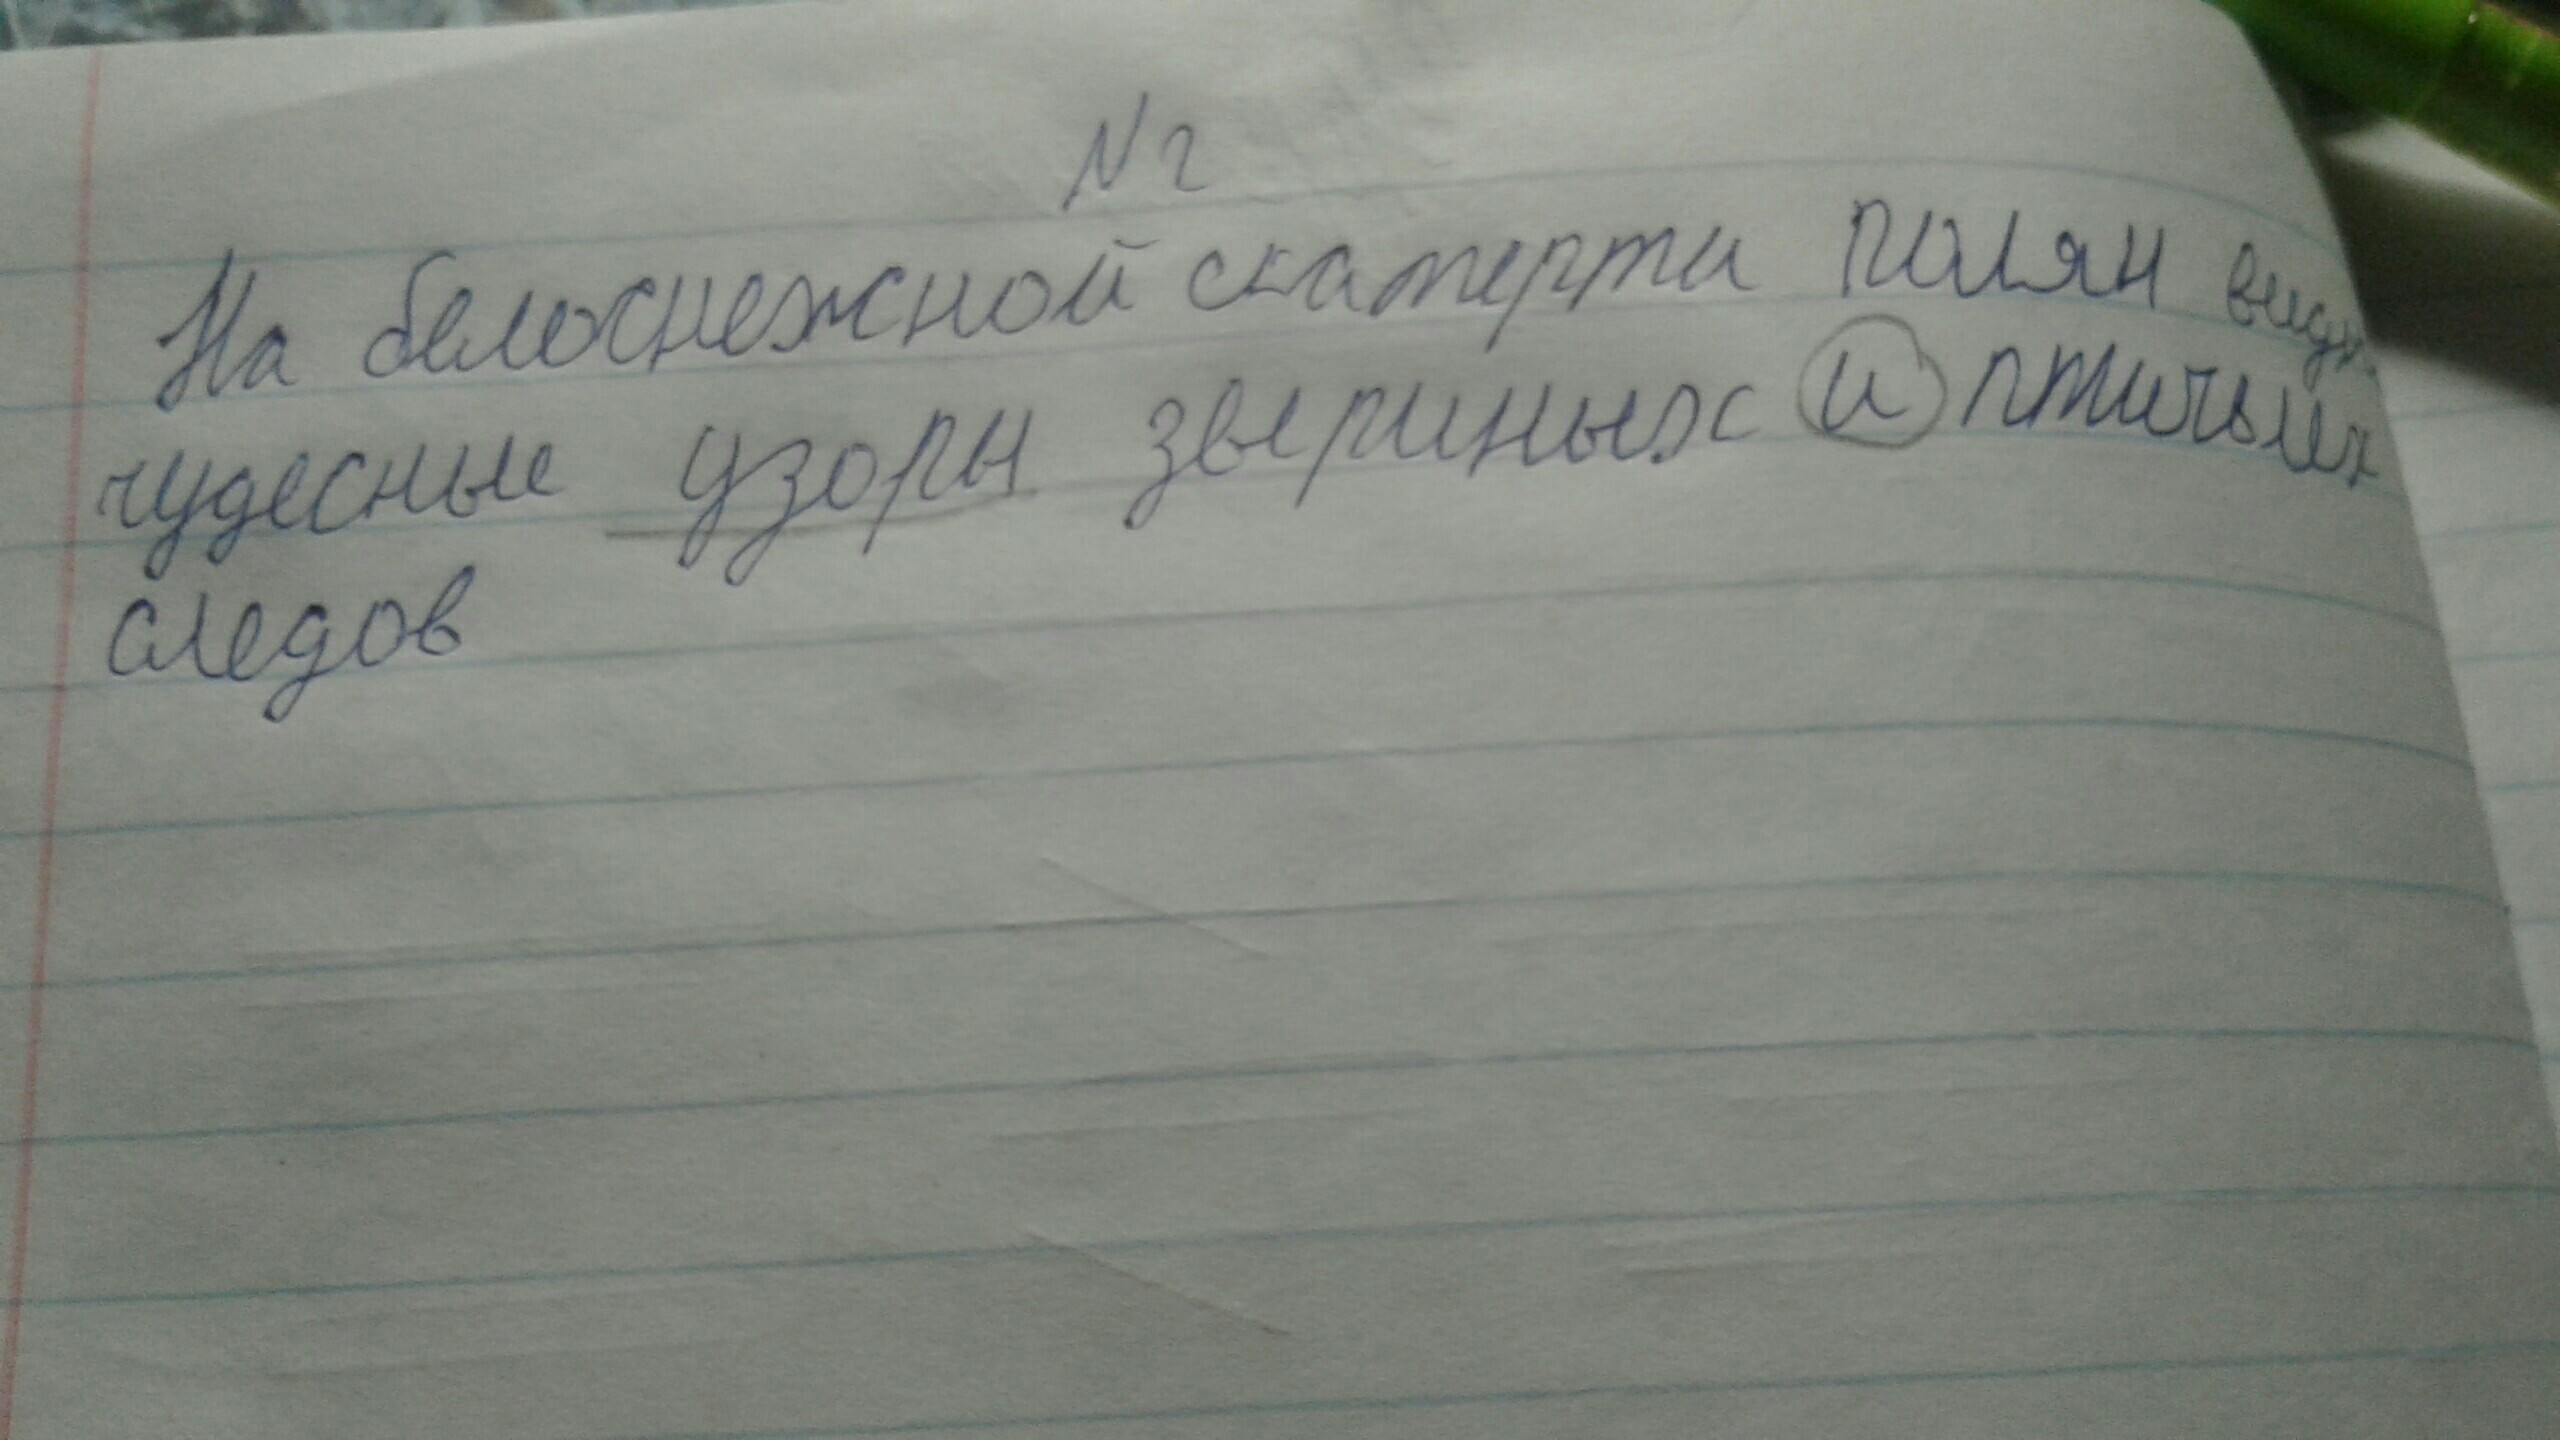 N 2
На белоснежной скатерти полян
чудесные узоры звериных и птичьих
следов